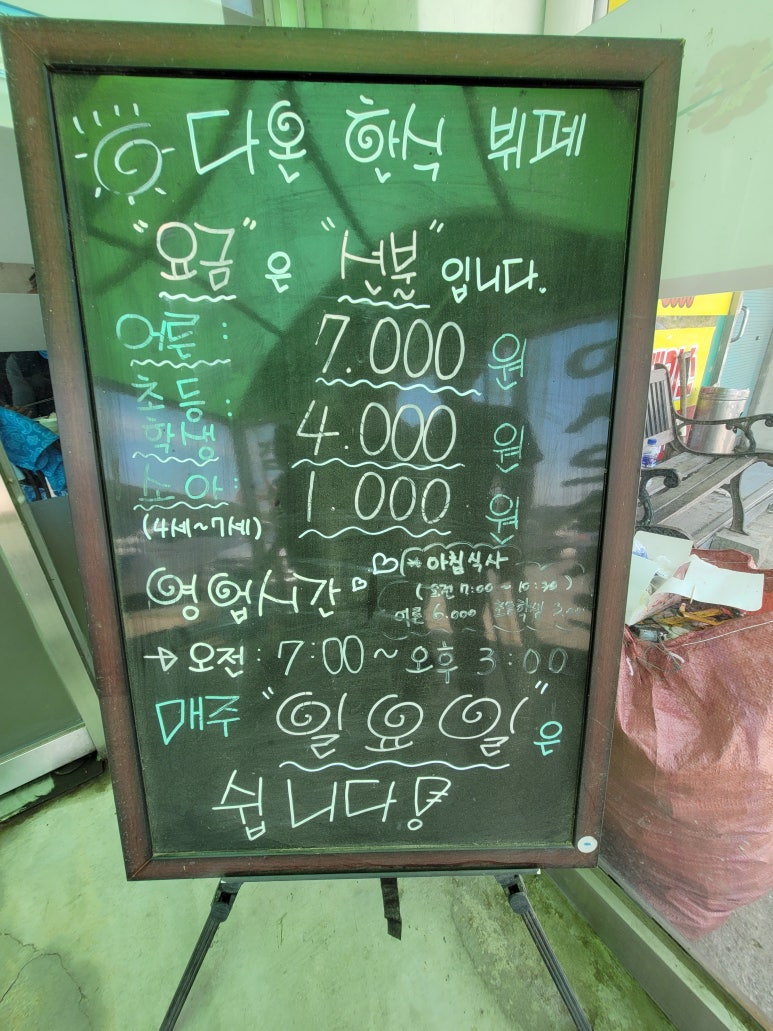 다온 한식 뷔페
"요금"은 "선불"입니다.
어른: 7.000원
초등학생: 4.000원
소아: 1.000원
(4세~7세)
영업시간
*아침식사
(오전 7:00 ~ 10:30)
어른 6.000 초등학생 3
→ 오전: 7:00 ~ 오후 3:00
매주 "일요일"은
쉽니다!